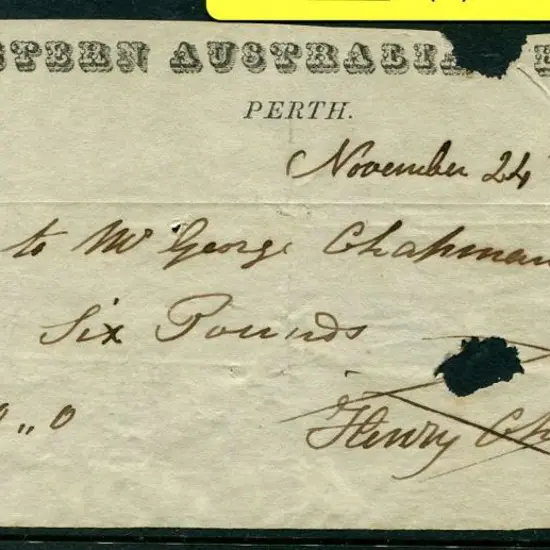 STERN AUSTRALIA
PERTH.
November 24
to Mr George Chapman
Six Pounds
0 " 0
Henry Ch